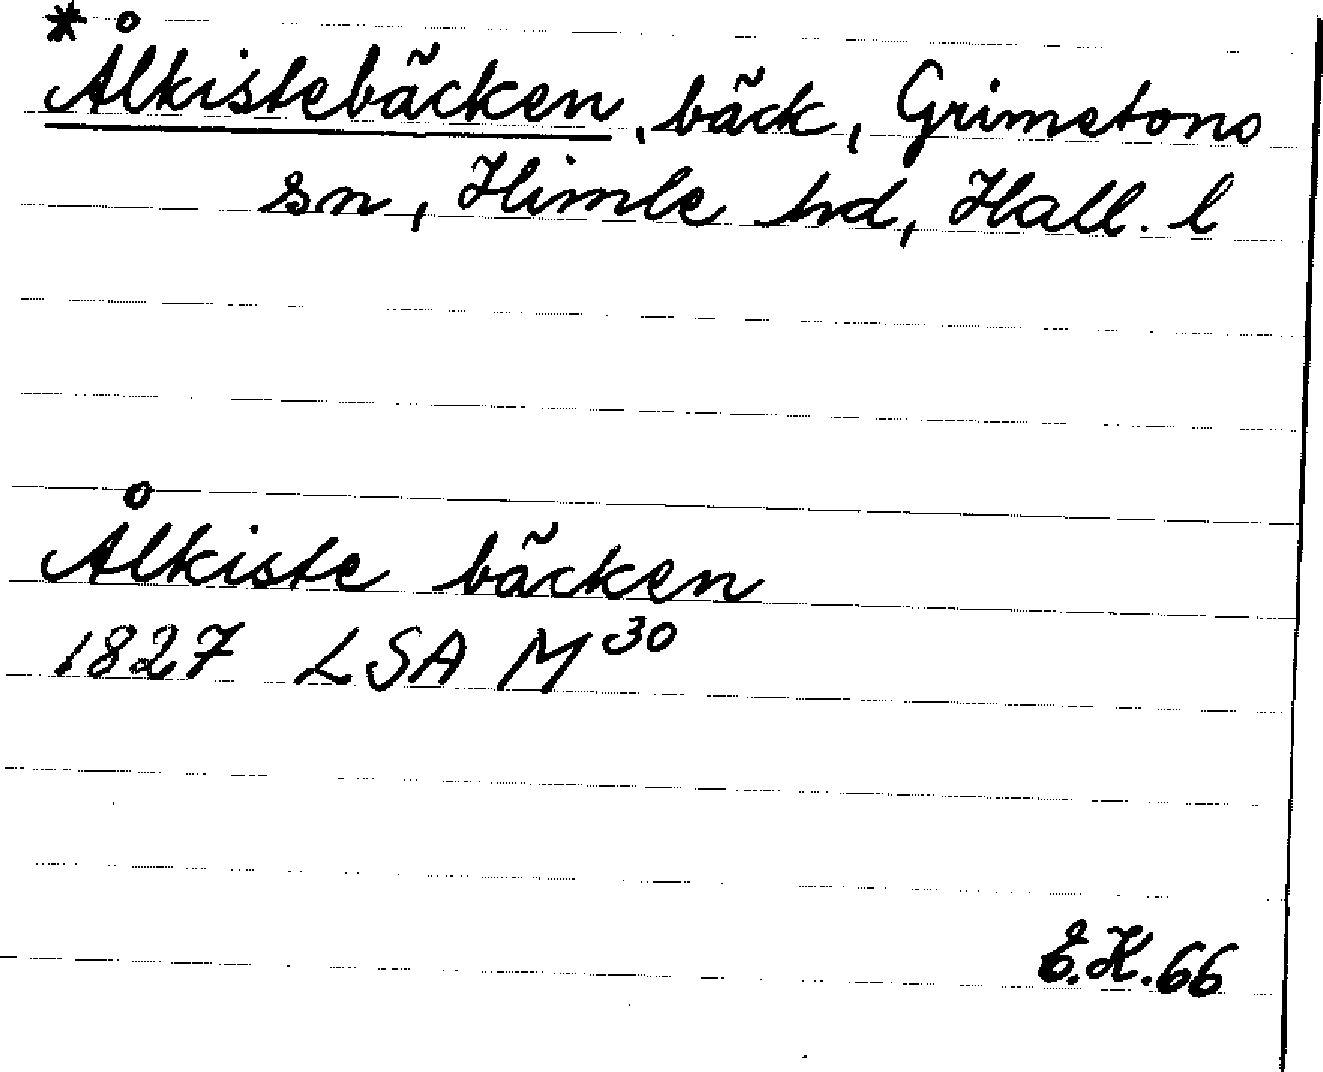 *Ålkistebäcken, bäck, Grimetons
sn, Himle hd, Hall. l
Ålkiste bäcken
1827 LSA M30
E.K. 66